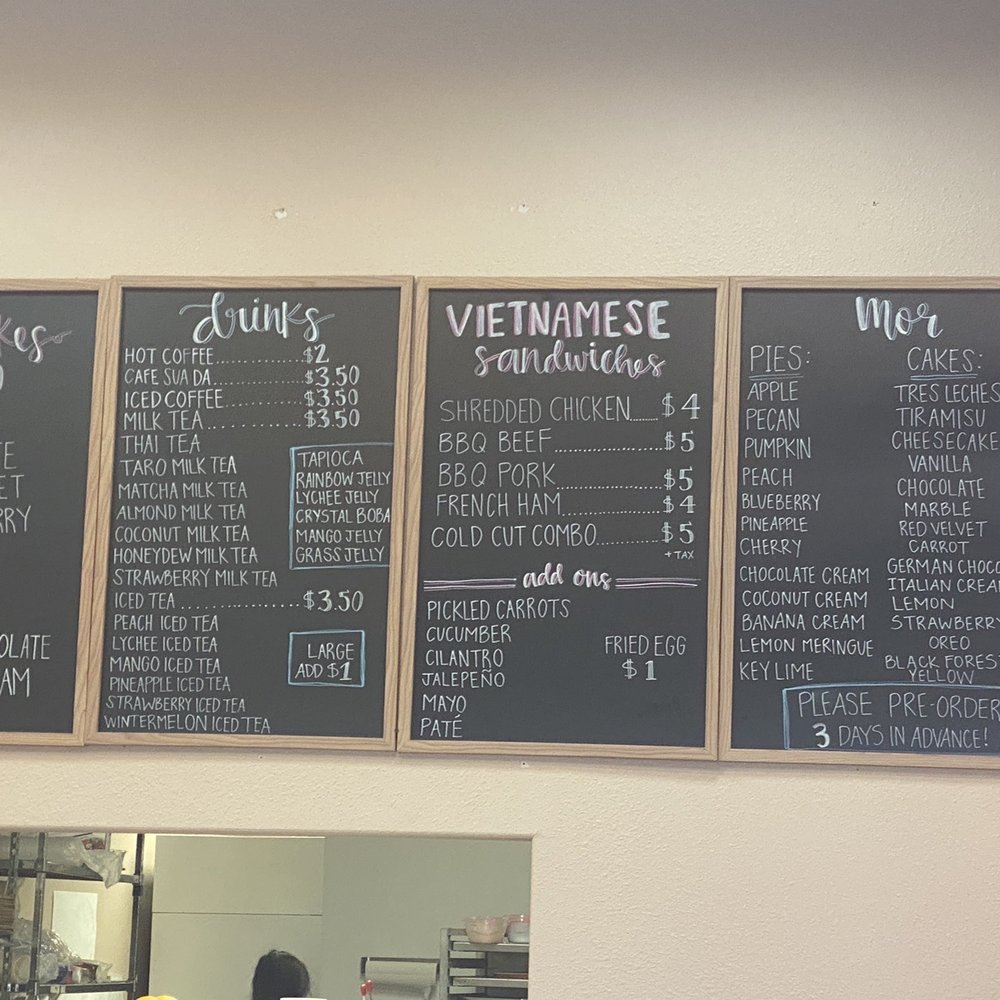 drinks
HOT COFFEE..............$2
CAFE SUA DA..............$3.50
ICED COFFEE..............$3.50
MILK TEA..............$3.50
THAI TEA
TARO MILK TEA
MATCHA MILK TEA
ALMOND MILK TEA
COCONUT MILK TEA
HONEYDEW MILK TEA
STRAWBERRY MILK TEA
TAPIOCA
RAINBOW JELLY
LYCHEE JELLY
CRYSTAL BOBA
MANGO JELLY
GRASS JELLY
ICED TEA..............$3.50
PEACH ICED TEA
LYCHEE ICED TEA
MANGO ICED TEA
PINEAPPLE ICED TEA
STRAWBERRY ICED TEA
WINTERMELON ICED TEA
LARGE
ADD $1
VIETNAMESE
sandwiches
SHREDDED CHICKEN.....$4
BBQ BEEF..............$5
BBQ PORK..............$5
FRENCH HAM..............$4
COLD CUT COMBO..............$5
+ TAX
add ons
PICKLED CARROTS
CUCUMBER
CILANTRO
JALEPEÑO
MAYO
PATÉ
FRIED EGG
$1
Mor
PIES:
APPLE
PECAN
PUMPKIN
PEACH
BLUEBERRY
PINEAPPLE
CHERRY
CHOCOLATE CREAM
COCONUT CREAM
BANANA CREAM
LEMON MERINGUE
KEY LIME
CAKES:
TRES LECHES
TIRAMISU
CHEESECAKE
VANILLA
CHOCOLATE
MARBLE
RED VELVET
CARROT
GERMAN CHOCO
ITALIAN CREAM
LEMON
STRAWBERRY
OREO
BLACK FOREST
YELLOW
PLEASE PRE-ORDER
3 DAYS IN ADVANCE!